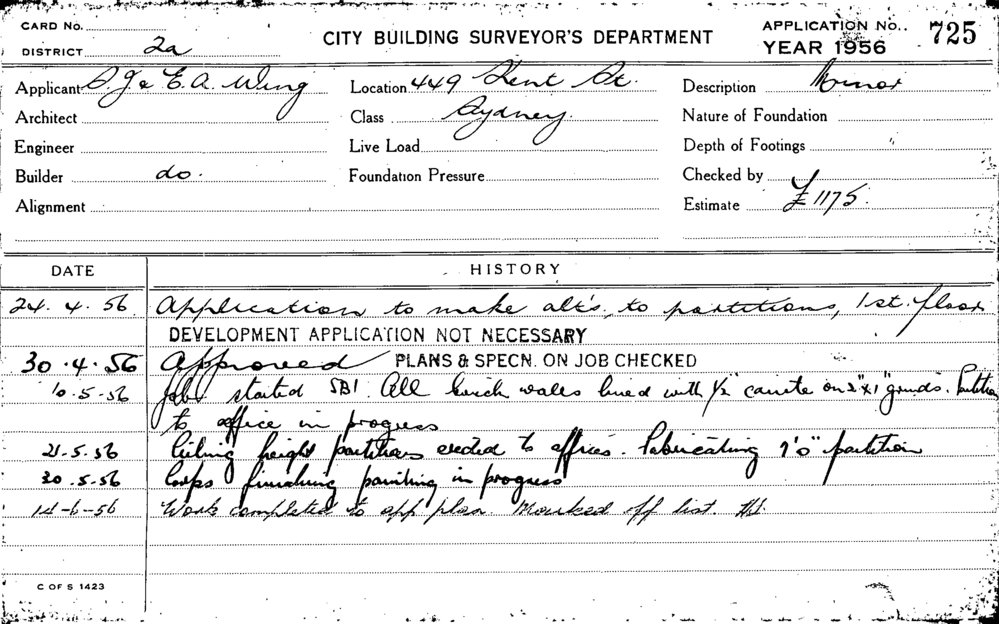 CARD No.
DISTRICT 2a
CITY BUILDING SURVEYOR'S DEPARTMENT
APPLICATION No. 725
YEAR 1956
Applicant S. J & E. A. Wing
Location 449 Kent St.
Description Minor
Architect
Class Sydney
Nature of Foundation
Engineer
Live Load
Depth of Footings
Builder do.
Foundation Pressure
Checked by
Alignment
Estimate £1175.
DATE HISTORY
24.4.56 Application to make alt's, to partitions, 1st. floor
DEVELOPMENT APPLICATION NOT NECESSARY
30.4.56 Approved PLANS & SPECN. ON JOB CHECKED
10.5.56 Job started SB1. All brick walls lined with 1/2" on 2"x1" grounds. Partition
to office in progress
21.5.56 Ceiling height partitions erected to offices. Fabricating 7'0" partition
30.5.56 Corps finishing painting in progress
14-6-56 Work completed to app plan. Marked off list.
C OF S 1423